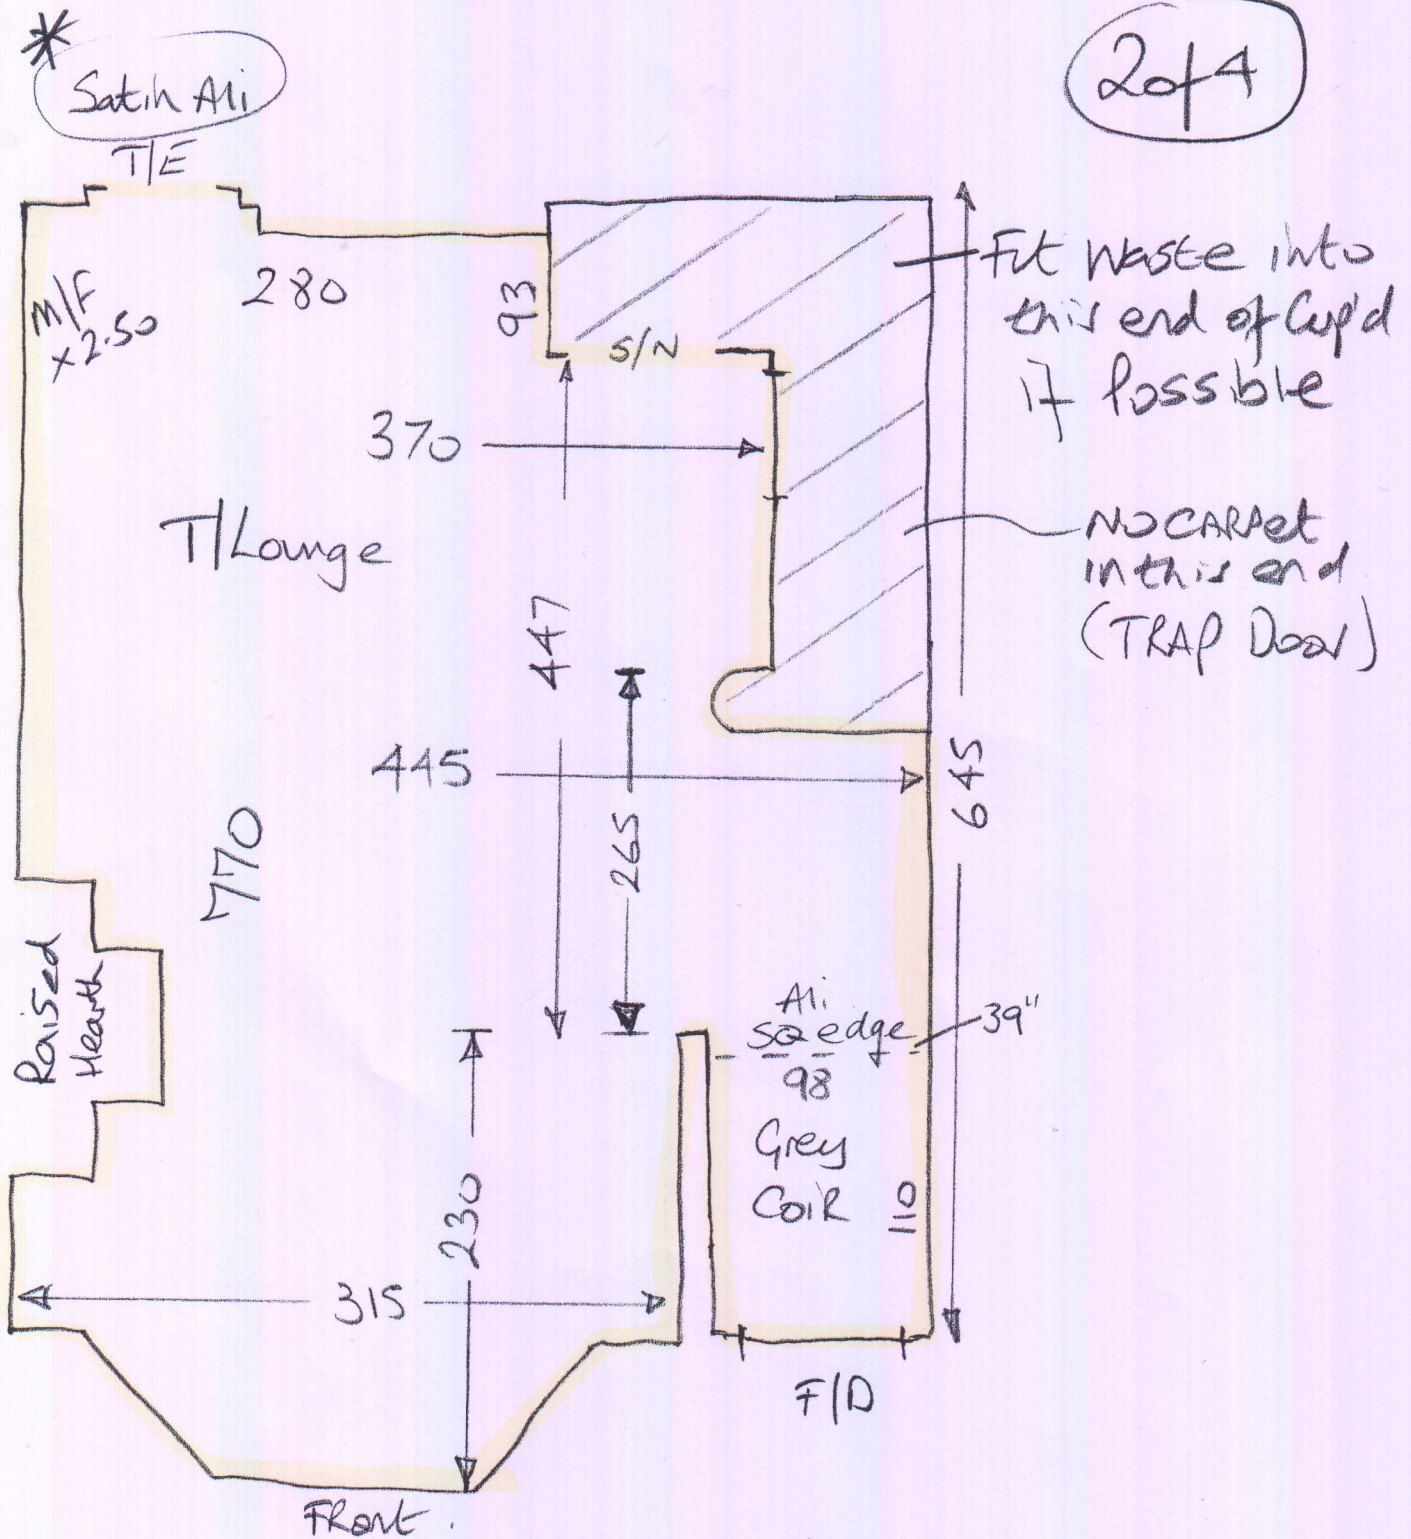 *
2of4
Satin Ali
T/E
M/F
x2.50
280
93
S/N
Fit waste into
this end of Cup'd
if Possible
370
T/Lounge
NO CARPet
in this end
(TRAP Door)
447
445
265
645
770
Raised
Hearth
Ali
SQ edge
39"
98
Grey
COIR
110
230
315
F/D
FRont.